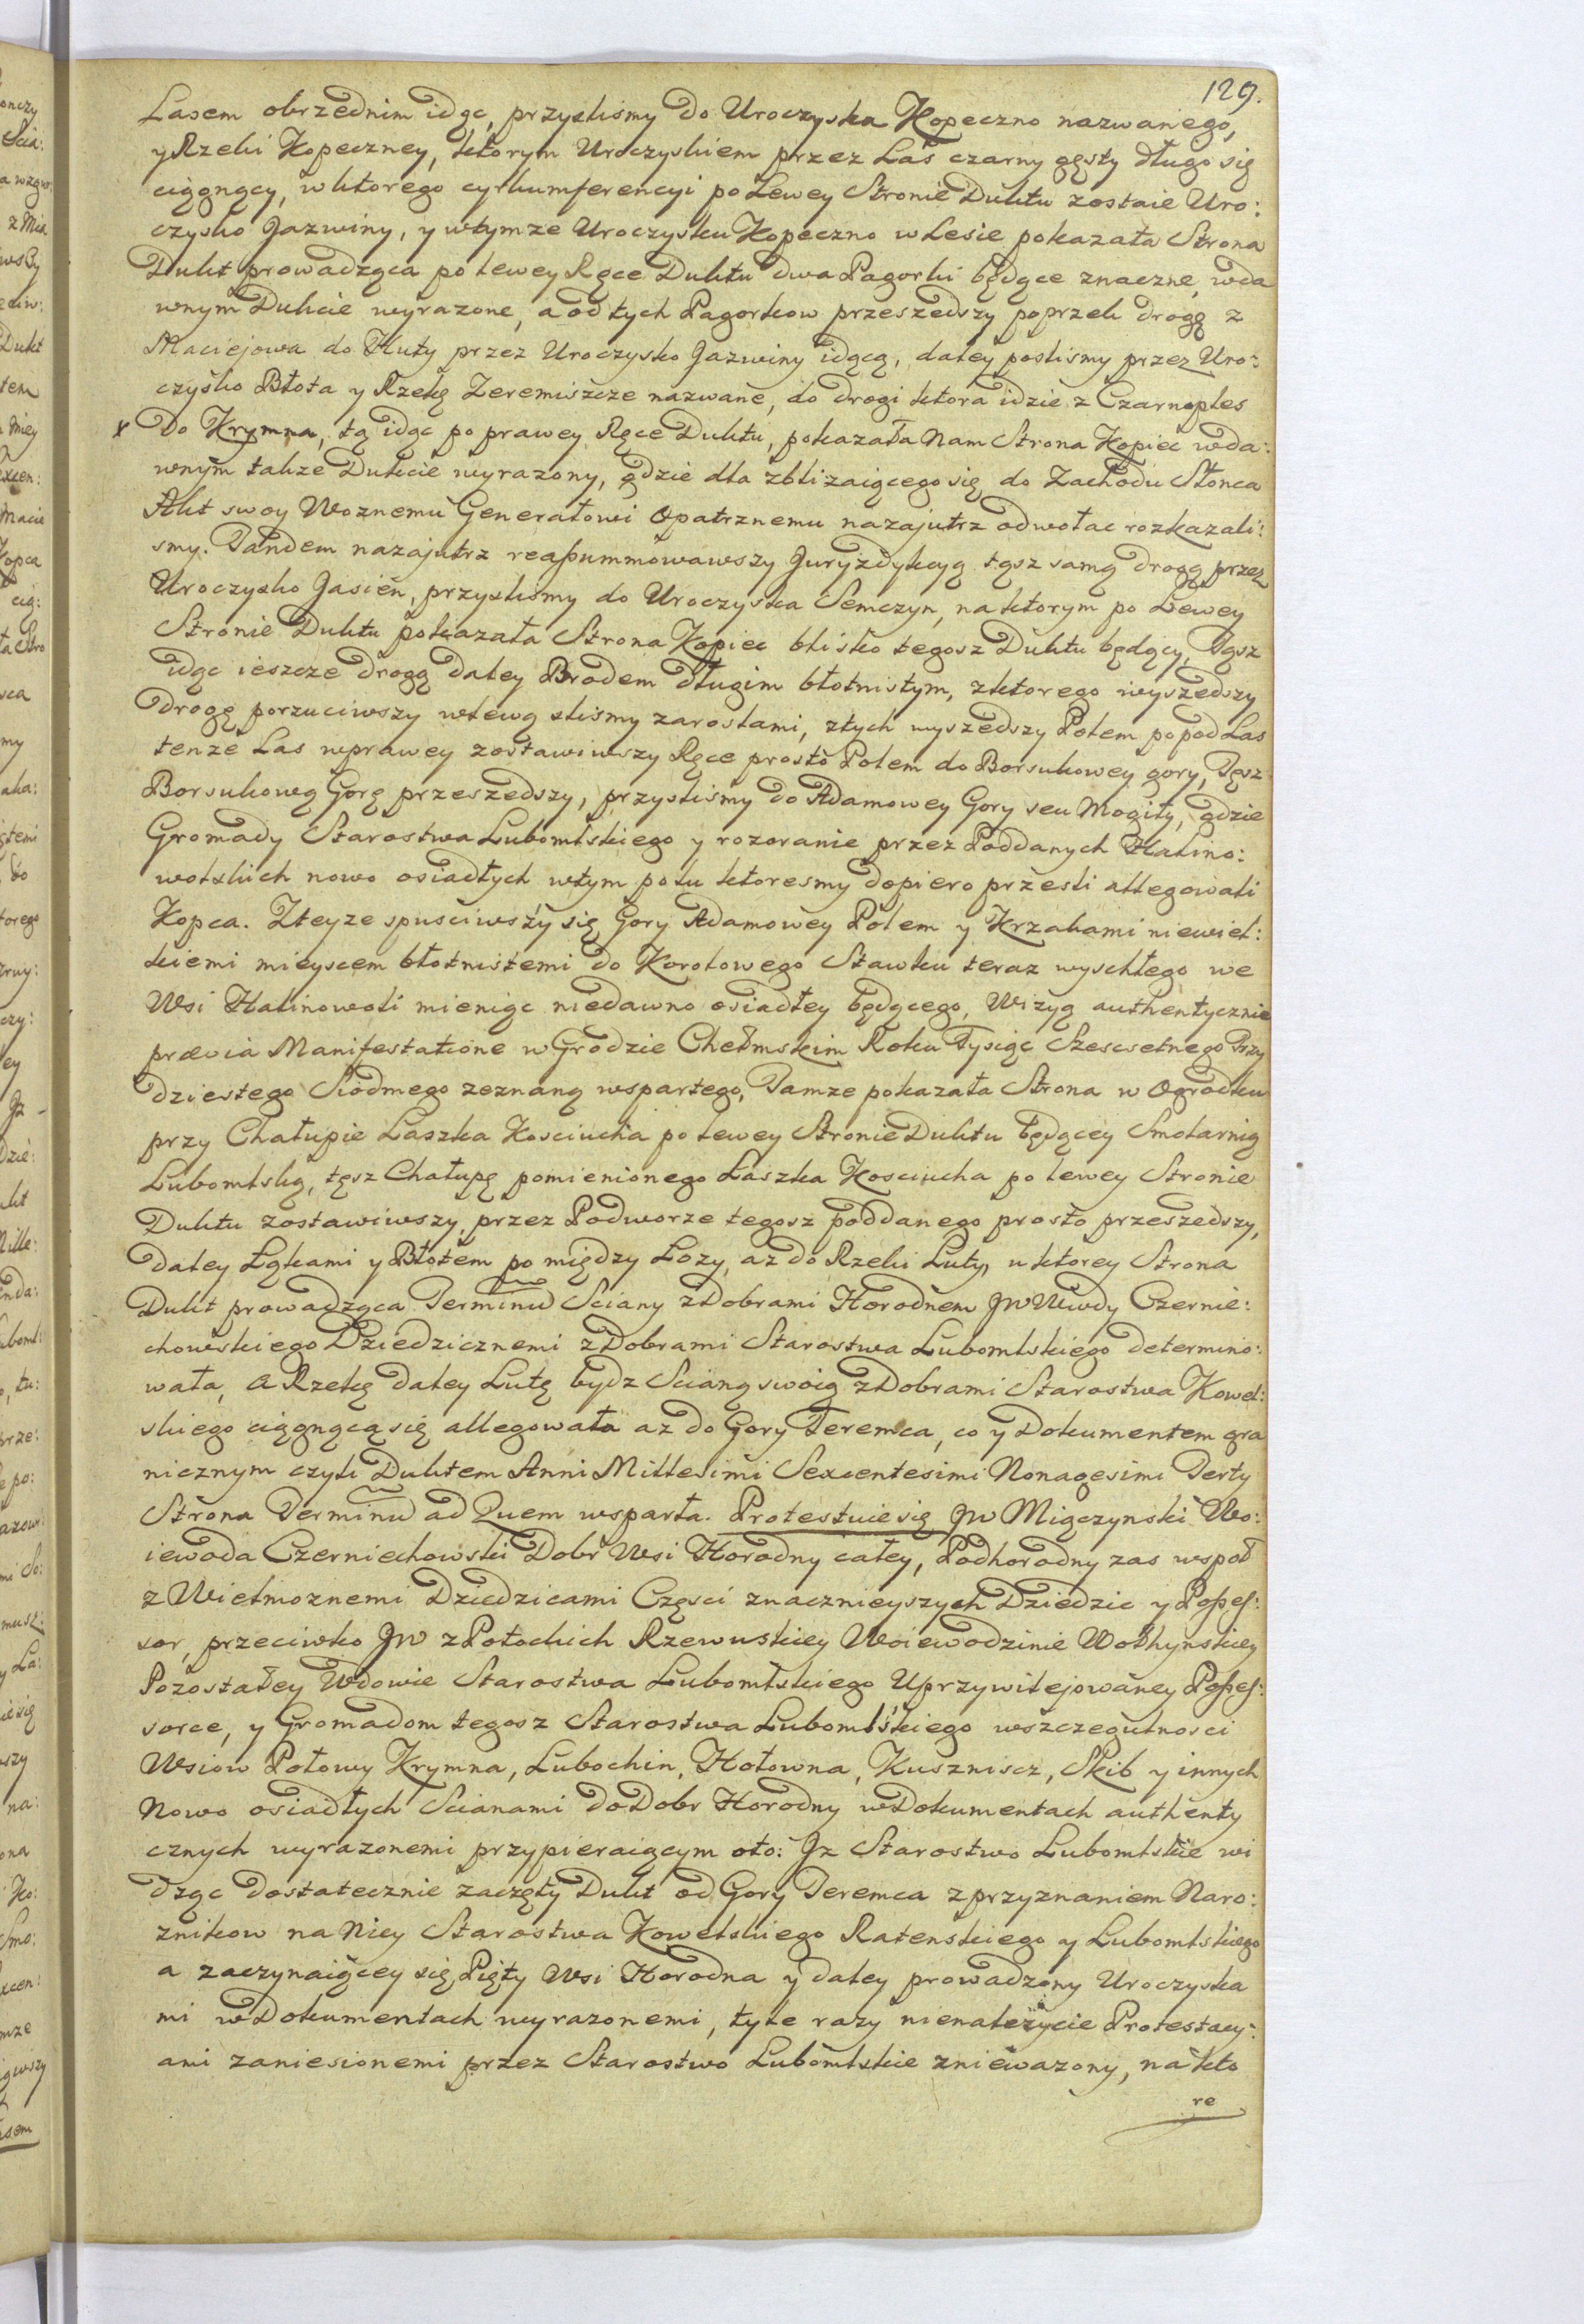 129.
Lasem obrzednim idąc, przyszlismy do Uroczyska Kopeczno nazwanego,
y Rzeki Kopeczney, ktorym Uroczyskiem przez Las czarny gęsty długo się
ciągnący, w ktorego cyrkumferencyi po Lewey Stronie Duktu zostaie Uro:
czysko Jazwiny, y wtymze Uroczysku Kopeczno w Lesie pokazała Strona
Dukt prowadząca po lewey Ręce Duktu dwa Pagorki będące znaczne, wda
wnym Dukcie wyrazone, a od tych Pagorkow przeszedszy poprzek drogę z
Maciejowa do Huty przez Uroczysko Jazwiny idącą, daley poslismy przez Uro:
czysko Błota y Rzekę Zeremiszcze nazwane, do drogi ktora idzie z Czarnoples
x do Krymna, tą idąc po prawey Ręce Duktu, pokazała Nam Strona Kopiec wda:
wnym takze Dukcie wyrazony, gdzie dla zblizaiącego się do Zachodu Słonca
Akt swoy Woznemu Generałowi Opatrznemu nazajutrz odwołac rozkazali:
smy. Tandem nazajutrz reassummowawszy Juryzdykcyą tąsz samą drogą przez
Uroczysko Jasien, przyszlismy do Uroczyska Semczyn, na ktorym po Lewey
Stronie Duktu pokazała Strona Kopiec blisko tegosz Duktu będący, Tąsz
idąc ieszcze drogą daley Brodem długim błotnistym, z ktorego wyszedszy
drogę porzuciwszy wlewą szlismy zaroslami, z tych wyszedszy Polem popod Las
tenze Las wprawey zostawiwszy Ręce prosto Polem do Borsukowey gory, Tęsz
Borsukową Gorę przeszedszy, przyszlismy do Adamowey Gory seu Mogiły, gdzie
Gromady Starostwa Lubomlskiego y rozoranie przez Poddanych Halino:
wolskich nowo osiadłych wtym polu ktoresmy dopiero przesli allegowali
Kopca. Zteyze spusciwszy się Gory Adamowey Polem y Krzakami niewiel:
kiemi mieyscem błotnistemi do Korolowego Stawku teraz wyschłego we
Wsi Halinowoli mieniąc niedawno osiadłey będącego, Wizyą authentycznie
prævia Manifestatione w Grodzie Chełmskim Roku Tysiąc Szescsetnego Trzy
dziestego Siodmego zeznaną wspartego, Tamze pokazała Strona w Ogrodku
przy Chałupie Laszka Kosciucha po lewey Stronie Duktu będącey Smolarnią
Lubomlską, tęsz Chałupę pomienionego Łaszka Kosciucha po lewey Stronie
Duktu zostawiwszy, przez Podworze tegosz poddanego prosto przeszedszy,
daley Łąkami y Błotem po między Łozy, az do Rzeki Luty, u ktorey Strona
Dukt prowadząca Terminu Sciany z Dobrami Horodnem JW Wwdy Czernie:
chowskiego Dziedzicznemi z Dobrami Starostwa Lubomlskiego determino:
wała, a Rzekę daley Lutę bydz Scianą swoią z Dobrami Starostwa Kowel:
skiego ciągnącą się allegowała az do Gory Teremca, co y Dokumentem gra
nicznym czyli Duktem Anni Millesimi Sexcentesimi Nonagesimi Terty
Strona Terminu ad Quem wsparła. Protestuie się JW Miączynski Wo:
iewoda Czerniechowski Dobr Wsi Horodny całey, Podhorodny zas wspoł
z Wielmoznemi Dziedzicami Częsci znacznieyszych Dziedzic y Posses:
sor, przeciwko JW z Potockich Rzewuskiey Woiewodzinie Wołhynskiey
Pozostałey Wdowie Starostwa Lubomlskiego Uprzywilejowaney Posses:
sorce, y Gromadom tegosz Starostwa Lubomlskiego wszczegulnosci
Wsiow Połowy Krymna, Lubochin, Hołowna, Kuszniscz, Skib y innych
Nowo osiadłych Scianami do Dobr Horodny w Dokumentach authenty
cznych wyrazonemi przypieraiącym oto: Iz Starostwo Lubomlskie wi
dząc dostatecznie zaczęty Dukt od Gory Teremca z przyznaniem Naro:
znikow na Niey Starostwa Kowelskiego Ratenskiego y Lubomlskiego
a zaczynaiącey się Pięty Wsi Horodna y daley prowadzony Uroczyska
mi w Dokumentach wyrazonemi, tyle razy nienalezycie Protestacy:
ami zaniesionemi przez Starostwo Lubomlskie zniewazony, na kto
re